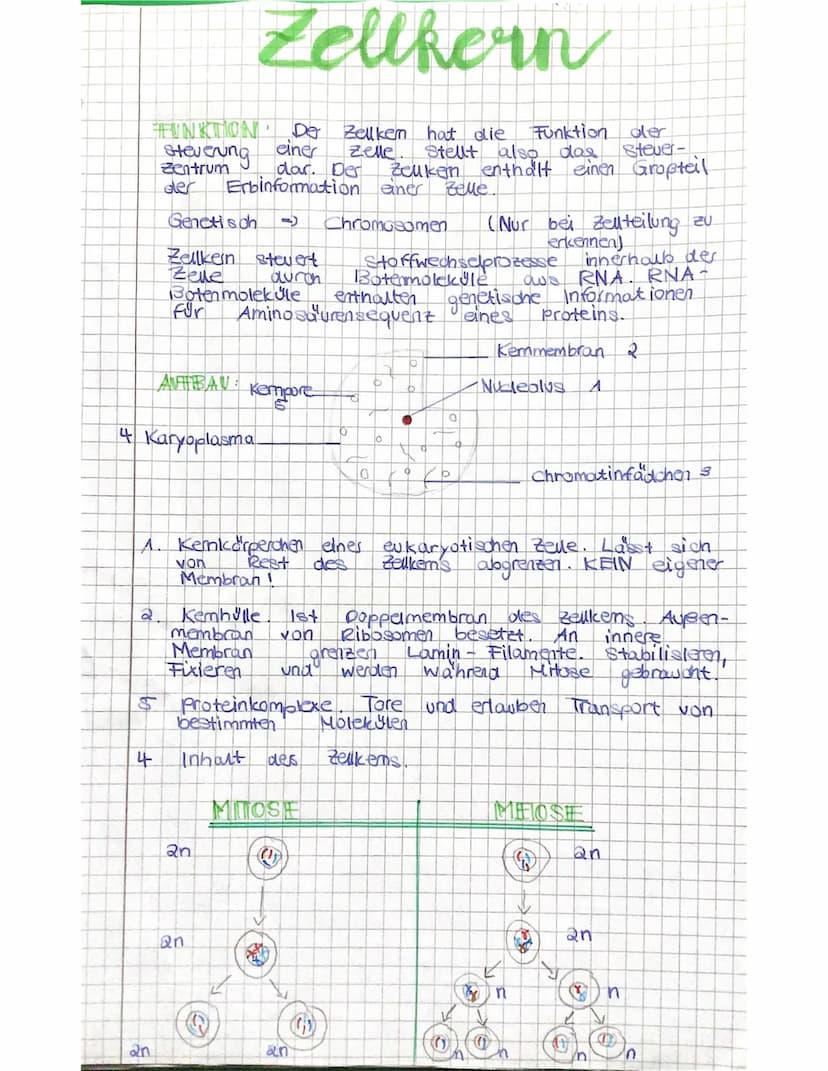 Zellkern
FUNKTION: Der Zellkern hat die Funktion der
Steuerung einer Zelle. Stellt also das Steuer-
zentrum dar. Der Zellkern enthält einen Großteil
der Erbinformation einer Zelle.
Genetisch => Chromosomen (Nur bei Zellteilung zu
erkennen)
Zellkern steuert Stoffwechselprozesse innerhalb der
Zelle durch Botemoleküle aus RNA. RNA-
Botenmoleküle enthalten genetische Informationen
für Aminosäurensequenz eines Proteins.
Kernmembran 2
AUFBAU: Kernpore
5
Nucleolus 1
4 Karyoplasma
Chromatinfädchen 3
1. Kernkörperchen eines eukaryotischen Zelle. Lässt sich
von Rest des Zellkerns abgrenzen. KEIN eigener
Membran!
2. Kernhülle. Ist Doppelmembran des Zellkerns. Außen-
membran von Ribosomen besetzt. An innere
Membran grenzen Lamin-Filamente. Stabilisieren,
Fixieren und werden während Mitose gebraucht.
5 Proteinkomplexe. Tore und erlauben Transport von
bestimmten Molekülen
4 Inhalt des Zellkerns.
MITOSE MEIOSE
2n 2n
2n 2n
n n
2n 2n n n n n